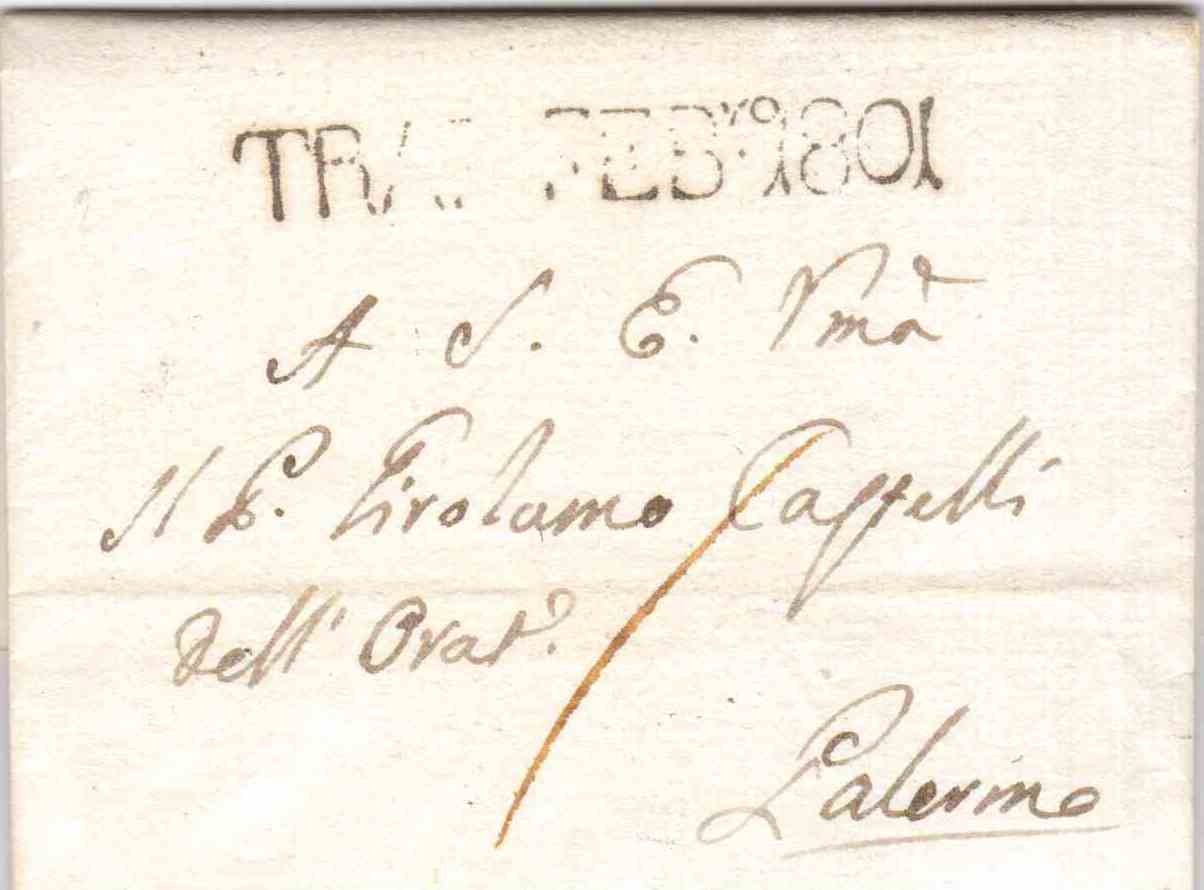 FEBʳᵒ 1801
A S. E. Rmã
Il P. Girolamo Castelli
dell' Oratº.
Palermo